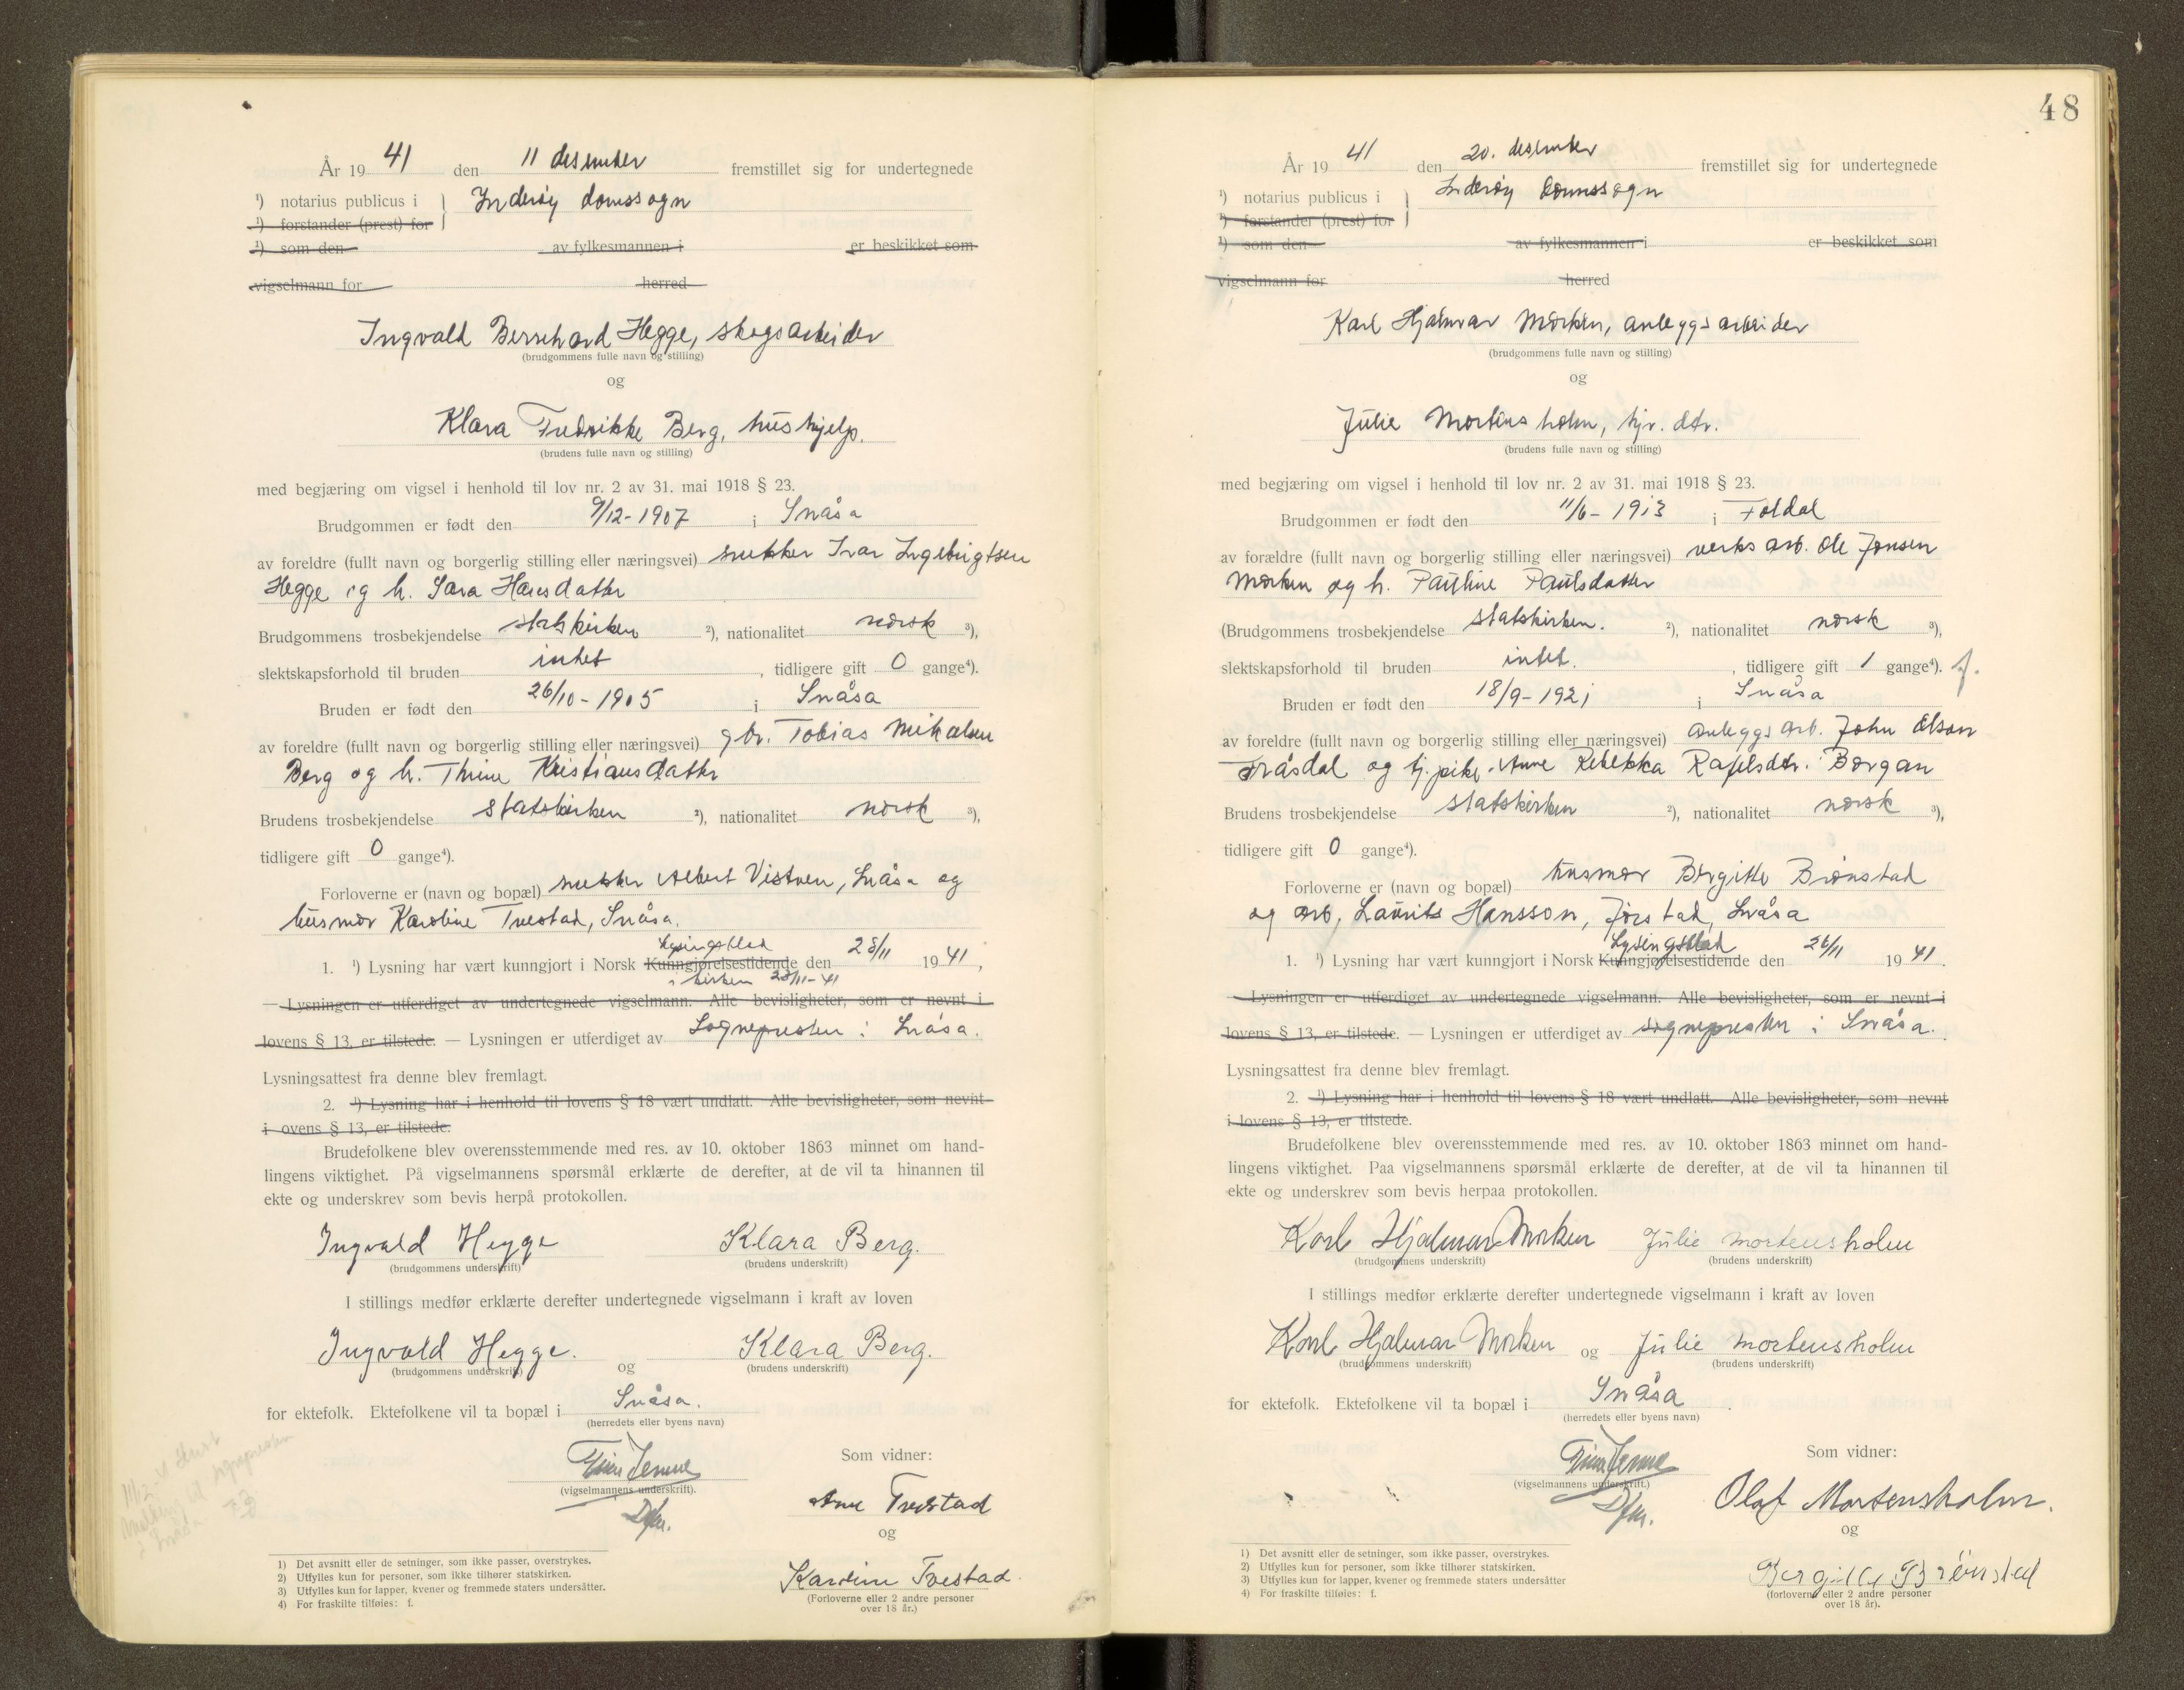 År 19 41 den 11 desember fremstillet sig for undertegnede
¹) notarius publicus i } Inderøy domssogn
¹) forstander (prest) for
¹) som den av fylkesmannen i er beskikket som
vigselmann for herred
Ingvald Bernhard Hegge, skogsarbeider
(brudgommens fulle navn og stilling)
og
Klara Fredrikke Berg, hushjelp.
(brudens fulle navn og stilling)
med begjæring om vigsel i henhold til lov nr. 2 av 31. mai 1918 § 23.
Brudgommen er født den 9/12-1907 i Snåsa
av foreldre (fullt navn og borgerlig stilling eller næringsvei) snekker Ivar Ingebrigtsen
Hegge og h. Sara Hansdatter
Brudgommens trosbekjendelse statskirken ²), nationalitet norsk ³),
slektskapsforhold til bruden intet, tidligere gift 0 gange⁴).
Bruden er født den 26/10-1905 i Snåsa
av foreldre (fullt navn og borgerlig stilling eller næringsvei) gbr. Tobias Mikalsen
Berg og h. Thrine Kristiansdatter
Brudens trosbekjendelse statskirken ²), nationalitet norsk ³),
tidligere gift 0 gange⁴).
Forloverne er (navn og bopæl) snekker Albert Vistven, Snåsa og
husmor Karoline Tvestad, Snåsa.
Lysingsblad
1. ¹) Lysning har vært kunngjort i Norsk Kunngjørelsestidende den 28/11 19 41,
i kirken 23/11-41
— Lysningen er utferdiget av undertegnede vigselmann. Alle bevisligheter, som er nevnt i
lovens § 13, er tilstede. — Lysningen er utferdiget av Sognepresten i Snåsa.
Lysningsattest fra denne blev fremlagt.
2. ¹) Lysning har i henhold til lovens § 18 vært undlatt. Alle bevisligheter, som nevnt
i ovens § 13, er tilstede.
Brudefolkene blev overensstemmende med res. av 10. oktober 1863 minnet om hand-
lingens viktighet. På vigselmannens spørsmål erklærte de derefter, at de vil ta hinannen til
ekte og underskrev som bevis herpå protokollen.
Ingvald Hegge Klara Berg.
(brudgommens underskrift) (brudens underskrift)
I stillings medfør erklærte derefter undertegnede vigselmann i kraft av loven
Ingvald Hegge. og Klara Berg.
(brudgommens underskrift) (brudens underskrift)
for ektefolk. Ektefolkene vil ta bopæl i Snåsa.
(herredets eller byens navn)
Som vidner:
(vigselmannens underskrift).
Dfm.
Anne Tvestad
og
Karoline Tvestad
(Forloverne eller 2 andre personer
over 18 år.)
1) Det avsnitt eller de setninger, som ikke passer, overstrykes.
2) Utfylles kun for personer, som ikke tilhører statskirken.
3) Utfylles kun for lapper, kvener og fremmede staters undersåtter.
4) For fraskilte tilføies: f.
48
År 19 41 den 20. desember fremstillet sig for undertegnede
¹) notarius publicus i } Inderøy domssogn
¹) forstander (prest) for
¹) som den av fylkesmannen i er beskikket som
vigselmann for herred
Karl Hjalmar Morken, anleggsarbeider
(brudgommens fulle navn og stilling)
og
Julie Mortensholm, hjv. dtr.
(brudens fulle navn og stilling)
med begjæring om vigsel i henhold til lov nr. 2 av 31. mai 1918 § 23.
Brudgommen er født den 11/6-1913 i Foldal
av forældre (fullt navn og borgerlig stilling eller næringsvei) verksarb. Ole Jonsen
Morken og h. Pauline Paulsdatter
(Brudgommens trosbekjendelse statskirken. ²), nationalitet norsk ³),
slektskapsforhold til bruden intet., tidligere gift 1 gange⁴). f.
Bruden er født den 18/9-1921 i Snåsa
av foreldre (fullt navn og borgerlig stilling eller næringsvei) anleggsarb. John Olson
Tråsdal og tj.pike. Anne Rebekka Rafelsdtr. Borgan
Brudens trosbekjendelse statskirken ²), nationalitet norsk ³),
tidligere gift 0 gange⁴).
Forloverne er (navn og bopæl) husmor Bergitte Brønstad
og arb, Laurits Hansson, Jørstad, Snåsa
Lysingsblad
1. ¹) Lysning har vært kunngjort i Norsk Kunngjørelsestidende den 26/11 19 41.
— Lysningen er utferdiget av undertegnede vigselmann. Alle bevisligheter, som er nevnt i
lovens § 13, er tilstede. — Lysningen er utferdiget av sognepresten i Snåsa.
Lysningsattest fra denne blev fremlagt.
2. ¹) Lysning har i henhold til lovens § 18 vært undlatt. Alle bevisligheter, som nevnt
i lovens § 13, er tilstede.
Brudefolkene blev overensstemmende med res. av 10. oktober 1863 minnet om hand-
lingens viktighet. Paa vigselmannens spørsmål erklærte de derefter, at de vil ta hinannen til
ekte og underskrev som bevis herpaa protokollen.
Karl Hjalmar Morken Julie Mortensholm
(brudgommens underskrift) (brudens underskrift)
I stillings medfør erklærte derefter undertegnede vigselmann i kraft av loven
Karl Hjalmar Morken og Julie Mortensholm
(brudgommens underskrift) (brudens underskrift)
for ektefolk. Ektefolkene vil ta bopæl i Snåsa.
(herredets eller byens navn)
Som vidner:
(vigselmannens underskrift.)
Dfm.
Olaf Mortensholm.
og
Bergitte Brönsted
(forloverne eller 2 andre personer
over 18 år).
1) Det avsnitt eller de setninger, som ikke passer, overstrykes.
2) Utfylles kun for personer, som ikke tilhører statskirken.
3) Utfylles kun for lapper, kvener og fremmede staters undersåtter
4) For fraskilte tilføies: f.